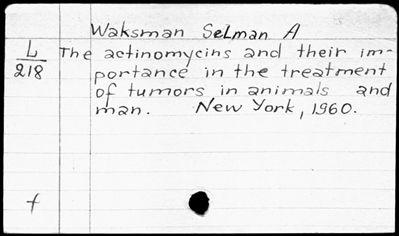 Waksman Selman A
L
218
The actinomycins and their im-
portance in the treatment
of tumors in animals and
man. New York, 1960.
f